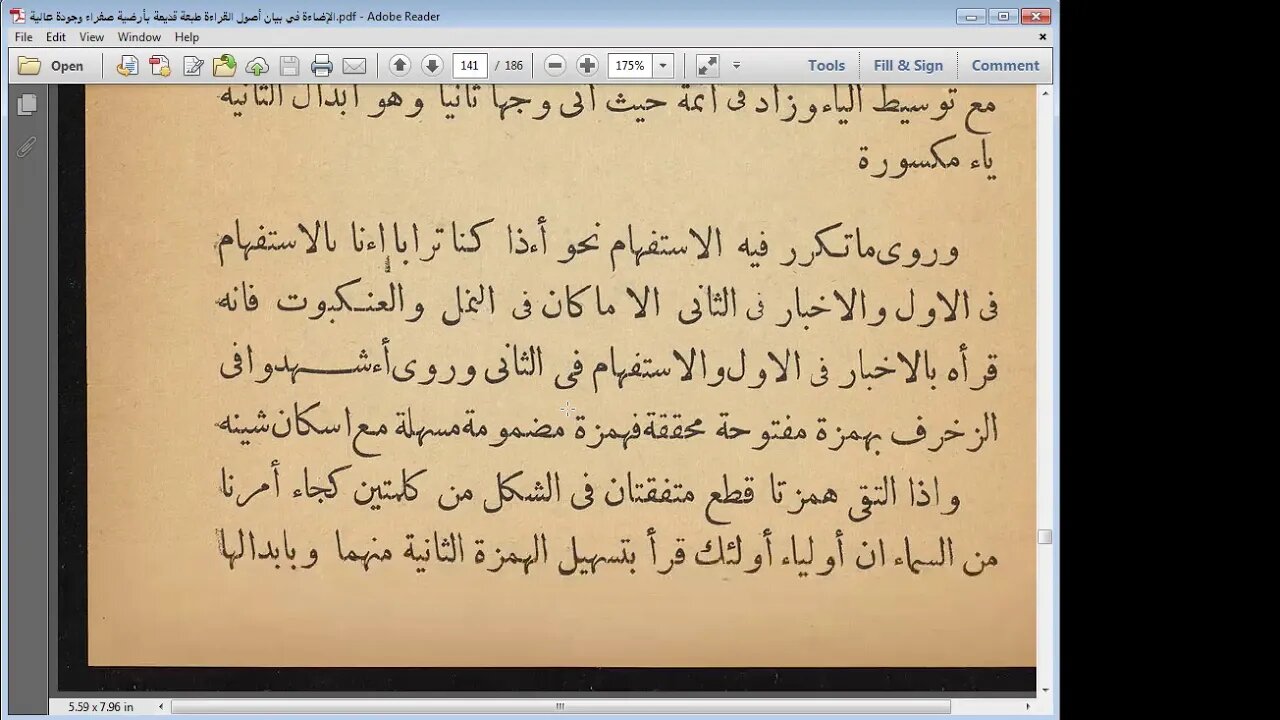 الإضاءة في بيان أصول القراءة طبعة قديمة بأرضية صفراء وجودة عالية.pdf - Adobe Reader
File Edit View Window Help
Open 141 / 186 175% Tools Fill & Sign Comment
مع توسيط الياء وزاد فى أئمة حيث أتى وجها ثانيا وهو ابدال الثانية
ياء مكسورة
وروى ماتكرر فيه الاستفهام نحو أءذا كنا ترابا إءنا بالاستفهام
فى الاول والاخبار فى الثانى الا ما كان فى النمل والعنكبوت فانه
قرأه بالاخبار فى الاول والاستفهام فى الثانى وروى أءشهدوا فى
الزخرف بهمزة مفتوحة محققة فهمزة مضمومة مسهلة مع اسكان شينه
واذا التقى همزتا قطع متفقتان فى الشكل من كلمتين كجاء أمرنا
من السماء ان أولياء أولئك قرأ بتسهيل الهمزة الثانية منهما وبابدالها
5.59 x 7.96 in